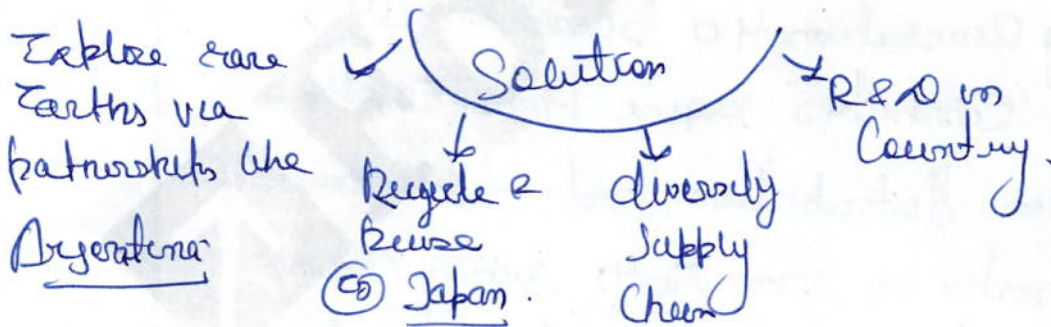 Solution
Explore rare
Earths via
partnerships like
Argentina
Recycle &
Reuse
eg Japan.
diversify
Supply
Chain
R & D in
Country.